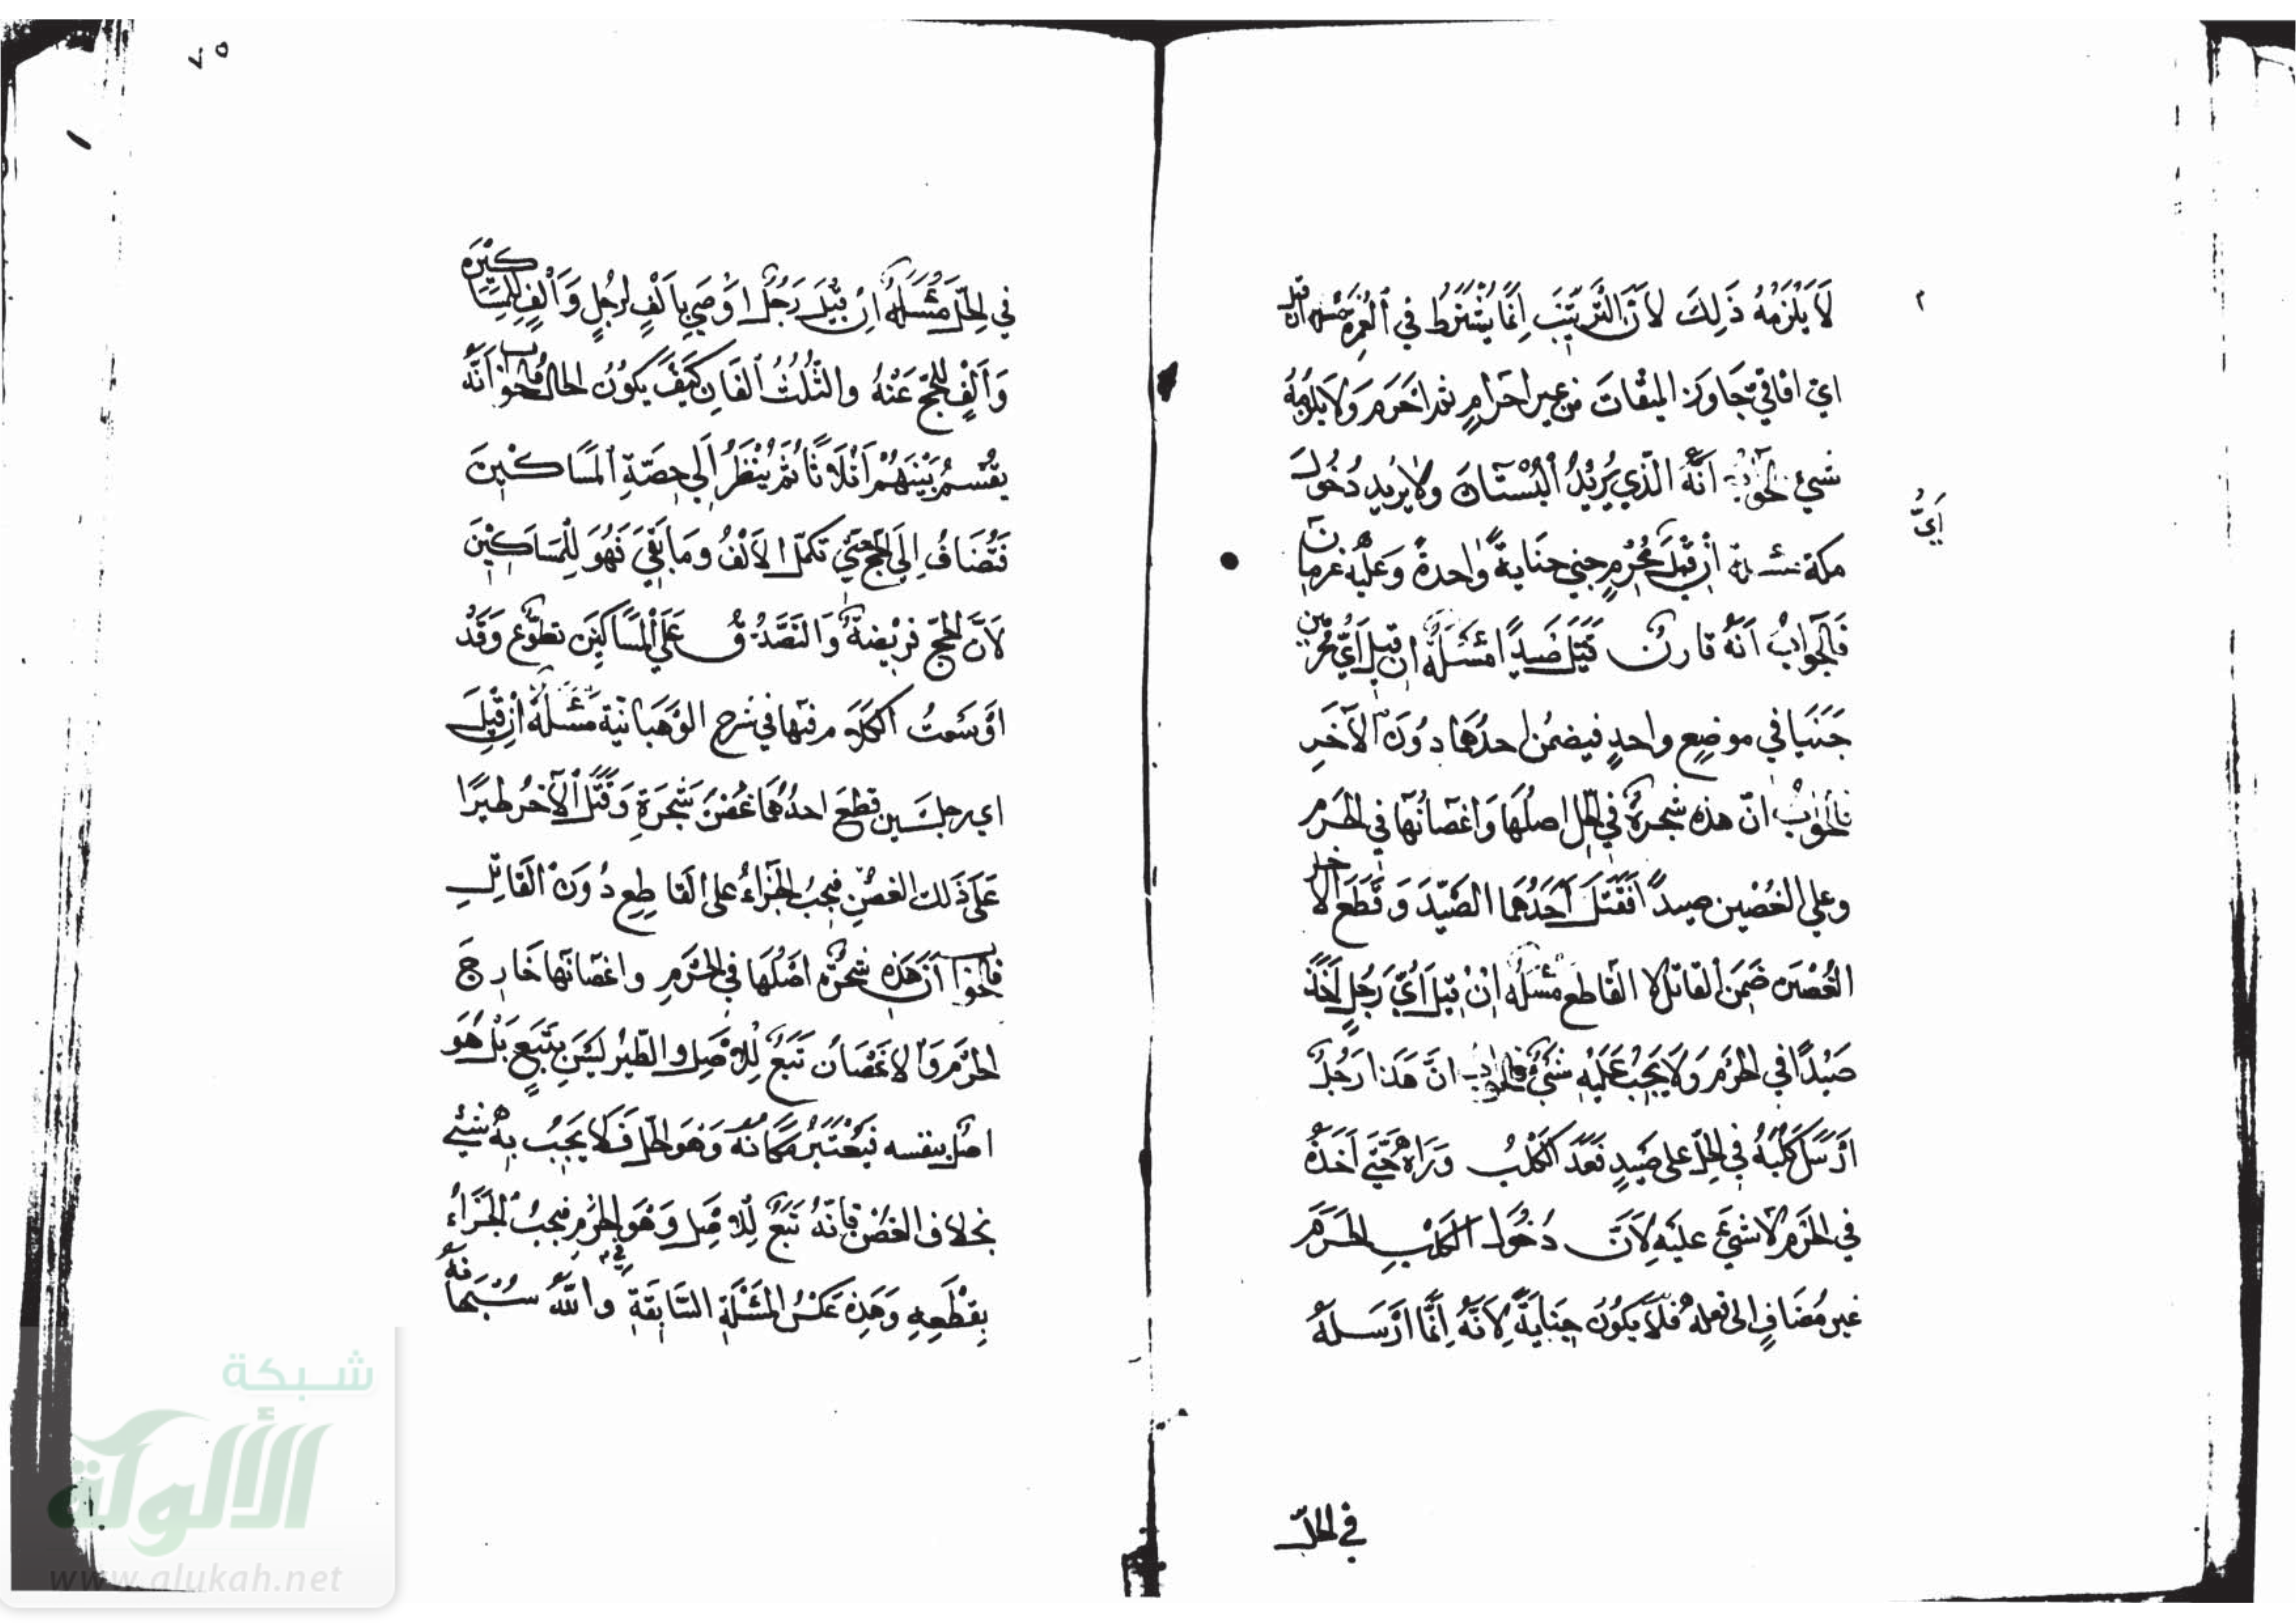 لَا يَلْزَمُهُ ذَلِكَ لأَنَّ التَّرتِيبَ اِنَّمَا يُشْتَرَطُ في اَلْغُرْمِ مسئلة ان قيل
اي افاقي جَاوَزَ الميْقاتَ من غير احْرامٍ ثم احَرَمَ وَلَا يَلْزَمُهُ
شيء الجَوَابُ اَنَّهُ الَّذي يُرِيْدُ اَلْبُسْتَانَ ولا يُريد دُخُولَ
مكة مسئلة اِنْ قِيْلَ مُحْرِمٍ جني جنَايةً واحدةً وَعَليْه غرمان
أيُّ
فَالْجَوابُ اَنَّهُ قارنٌ قَتَلَ صَيدًا مَسْئَلَةٌ ان قيل اَيُّ مُحْرِمَين
جَنَيَا في موضِعٍ واحدٍ فيضمنُ احدُهُمَا دُوْنَ الآخَرِ
فالجَوابُ انّ هذه شجرةٌ في الحِل اصلُهَا وَاغصَانُهَا في الحَرَم
وعلي الغُصْنِ صيداً فَقَتَلَ اَحَدُهُمَا الصَّيْدَ وَ قَطَعَ الآخر
الغُصْنَ ضَمِنَ القَاتل لا القَاطع مَسْئَلَةٌ اِنْ قيلَ اَيُّ رَجُلٍ اَخَذَ
صَيْدًا في الحَرَمِ وَلَا يَجِبُ عَلَيْهِ شَيْءٌ فالجَوابُ انَّ هَذا رَجُلٌ
اَرْسَلَ كَلْبَهُ في الحِلّ على صَيدٍ فَعَدَ الكَلْبُ وَرَاهُ حَتَّى اَخَذَهُ
في الحَرَم لَا شيْءَ عليْهِ لِأَنَّ دُخُولَ الكَلْبِ الحَرَمَ
غير مُضَافٍ الى فعله فَلَا يَكُوْنُ جِنَايَةً لِأَنَّهُ اِنَّمَا اَرْسَلَهُ
في الحلّ
٧٥
في الحِلّ مَسْئَلَةٌ اِنْ قِيْلَ رَجُلٌ اَوْصَي بِاَلْفٍ لِرَجُلٍ وَاَلْفٍ لِلْمَسَاكِيْنَ
وَاَلْفٍ لِلحَجّ عَنْهُ والثُّلُثُ اَلْفَانِ كَيْفَ يَكُوْنُ الحال فالجواب اَنَّهُ
يقْسَمُ بَيْنَهُمْ اَثْلَاثًا ثُمَّ يُنْظَرُ اِلى حِصَّةِ المَسَاكِيْنِ
فَتُضَافُ اِلَى الحَجّ حَتَّي تكمّل الاَلْفُ وَمَا بَقِيَ فَهُوَ لِلْمَسَاكِيْنَ
لأَنَّ الحَجّ فَرِيْضَةٌ وَالتَصَدُّقُ عَلَى المَسَاكِيْنَ تَطَوُّع وَقَدْ
اَوْسَعتُ الكَلَام فيها في شَرحِ الوَهبَانيّة مَسْئَلَةٌ اِنْ قِيْلَ
اي رجلين قَطَعَ احدُهُمَا غُصْنَ شَجَرَةٍ وَقَتَلَ الآخَرُ طَيرًا
عَلَى ذَلك الغصْنِ فيجبُ الجَزَاءُ على القَاطِعِ دُوْنَ القَاتِلِ
فالجَوَاب اَنَّ هَذِه شجَرَةٌ اصْلُهَا في الحَرَمِ وَاغصَانُهَا خَارِجَ
الحَرَم وَالاَغْصَان تَبَعٌ لِلْاَصْلِ والطَّيْرُ لَيْسَ بِتَبَعٍ بَلْ هُوَ
اصْلٌ بنفسه فَيُعْتَبَرُ مَكَانُهُ وَهُوَ الحِلّ فَلَا يَجِبُ بِهِ شَيْئ
بخلاف الغصْن فَاِنَّهُ تَبَعٌ لِلْاَصْلِ وَهُوَ الحَرَمِ فيجبُ الجَزَاءُ
في
بِقَطْعِهِ وَهَذِه عَكْسُ المَسْئَلَةِ السَّابِقَةِ واللّٰه سُبْحَانَهُ
شبكة
الألوكة
www.alukah.net